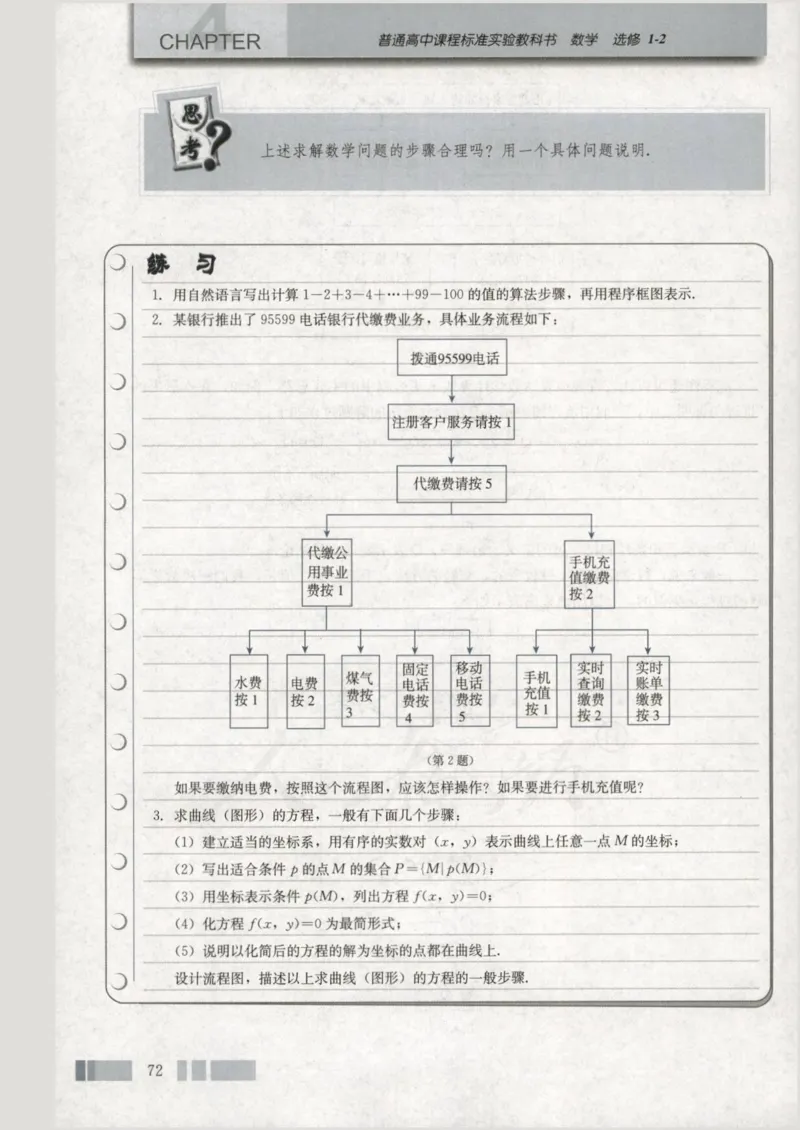 CHAPTER 4
普通高中课程标准实验教科书 数学 选修 1-2
思考?
上述求解数学问题的步骤合理吗?用一个具体问题说明.
练 习
1. 用自然语言写出计算 1-2+3-4+…+99-100 的值的算法步骤,再用程序框图表示.
2. 某银行推出了 95599 电话银行代缴费业务,具体业务流程如下:
拨通95599电话
注册客户服务请按 1
代缴费请按 5
代缴公
用事业
费按 1
手机充
值缴费
按 2
水费
按 1
电费
按 2
煤气
费按
3
固定
电话
费按
4
移动
电话
费按
5
手机
充值
按 1
实时
查询
缴费
按 2
实时
账单
缴费
按 3
(第 2 题)
如果要缴纳电费,按照这个流程图,应该怎样操作?如果要进行手机充值呢?
3. 求曲线(图形)的方程,一般有下面几个步骤:
(1) 建立适当的坐标系,用有序的实数对(x, y)表示曲线上任意一点 M 的坐标;
(2) 写出适合条件 p 的点 M 的集合 P={M|p(M)};
(3) 用坐标表示条件 p(M),列出方程 f(x, y)=0;
(4) 化方程 f(x, y)=0 为最简形式;
(5) 说明以化简后的方程的解为坐标的点都在曲线上.
设计流程图,描述以上求曲线(图形)的方程的一般步骤.
72